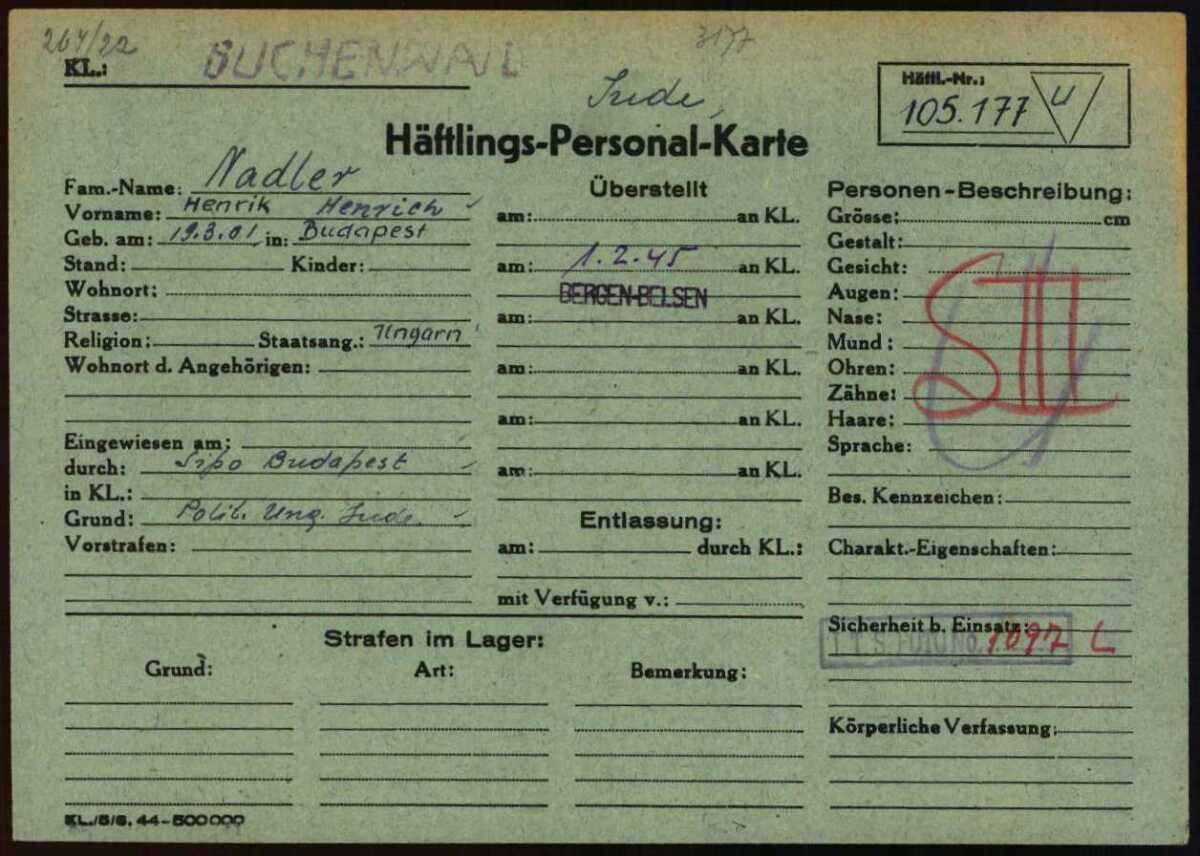 264/22
3177
KL.: BUCHENWALD
Jude
Häftl.-Nr.:
105.177 U
Häftlings-Personal-Karte
Fam.-Name: Nadler
Vorname: Henrik Henrich
Geb. am: 19.3.01 in: Budapest
Stand: Kinder:
Wohnort:
Strasse:
Religion: Staatsang.: Ungarn
Wohnort d. Angehörigen:
Eingewiesen am:
durch: Sipo Budapest
in KL.:
Grund: Polit. Ung. Jude.
Vorstrafen:
Überstellt
am: an KL.
am: 1.2.45 an KL.
BERGEN-BELSEN
am: an KL.
am: an KL.
am: an KL.
am: an KL.
Entlassung:
am: durch KL.:
mit Verfügung v.:
Personen-Beschreibung:
Grösse: cm
Gestalt:
Gesicht:
Augen:
Nase:
Mund:
Ohren:
Zähne:
Haare:
Sprache:
Bes. Kennzeichen:
Charakt.-Eigenschaften:
Sicherheit b. Einsatz:
ITS FOTO No. 1097 L
Körperliche Verfassung:
Strafen im Lager:
Grund: Art: Bemerkung:
KL./5/6. 44-500000